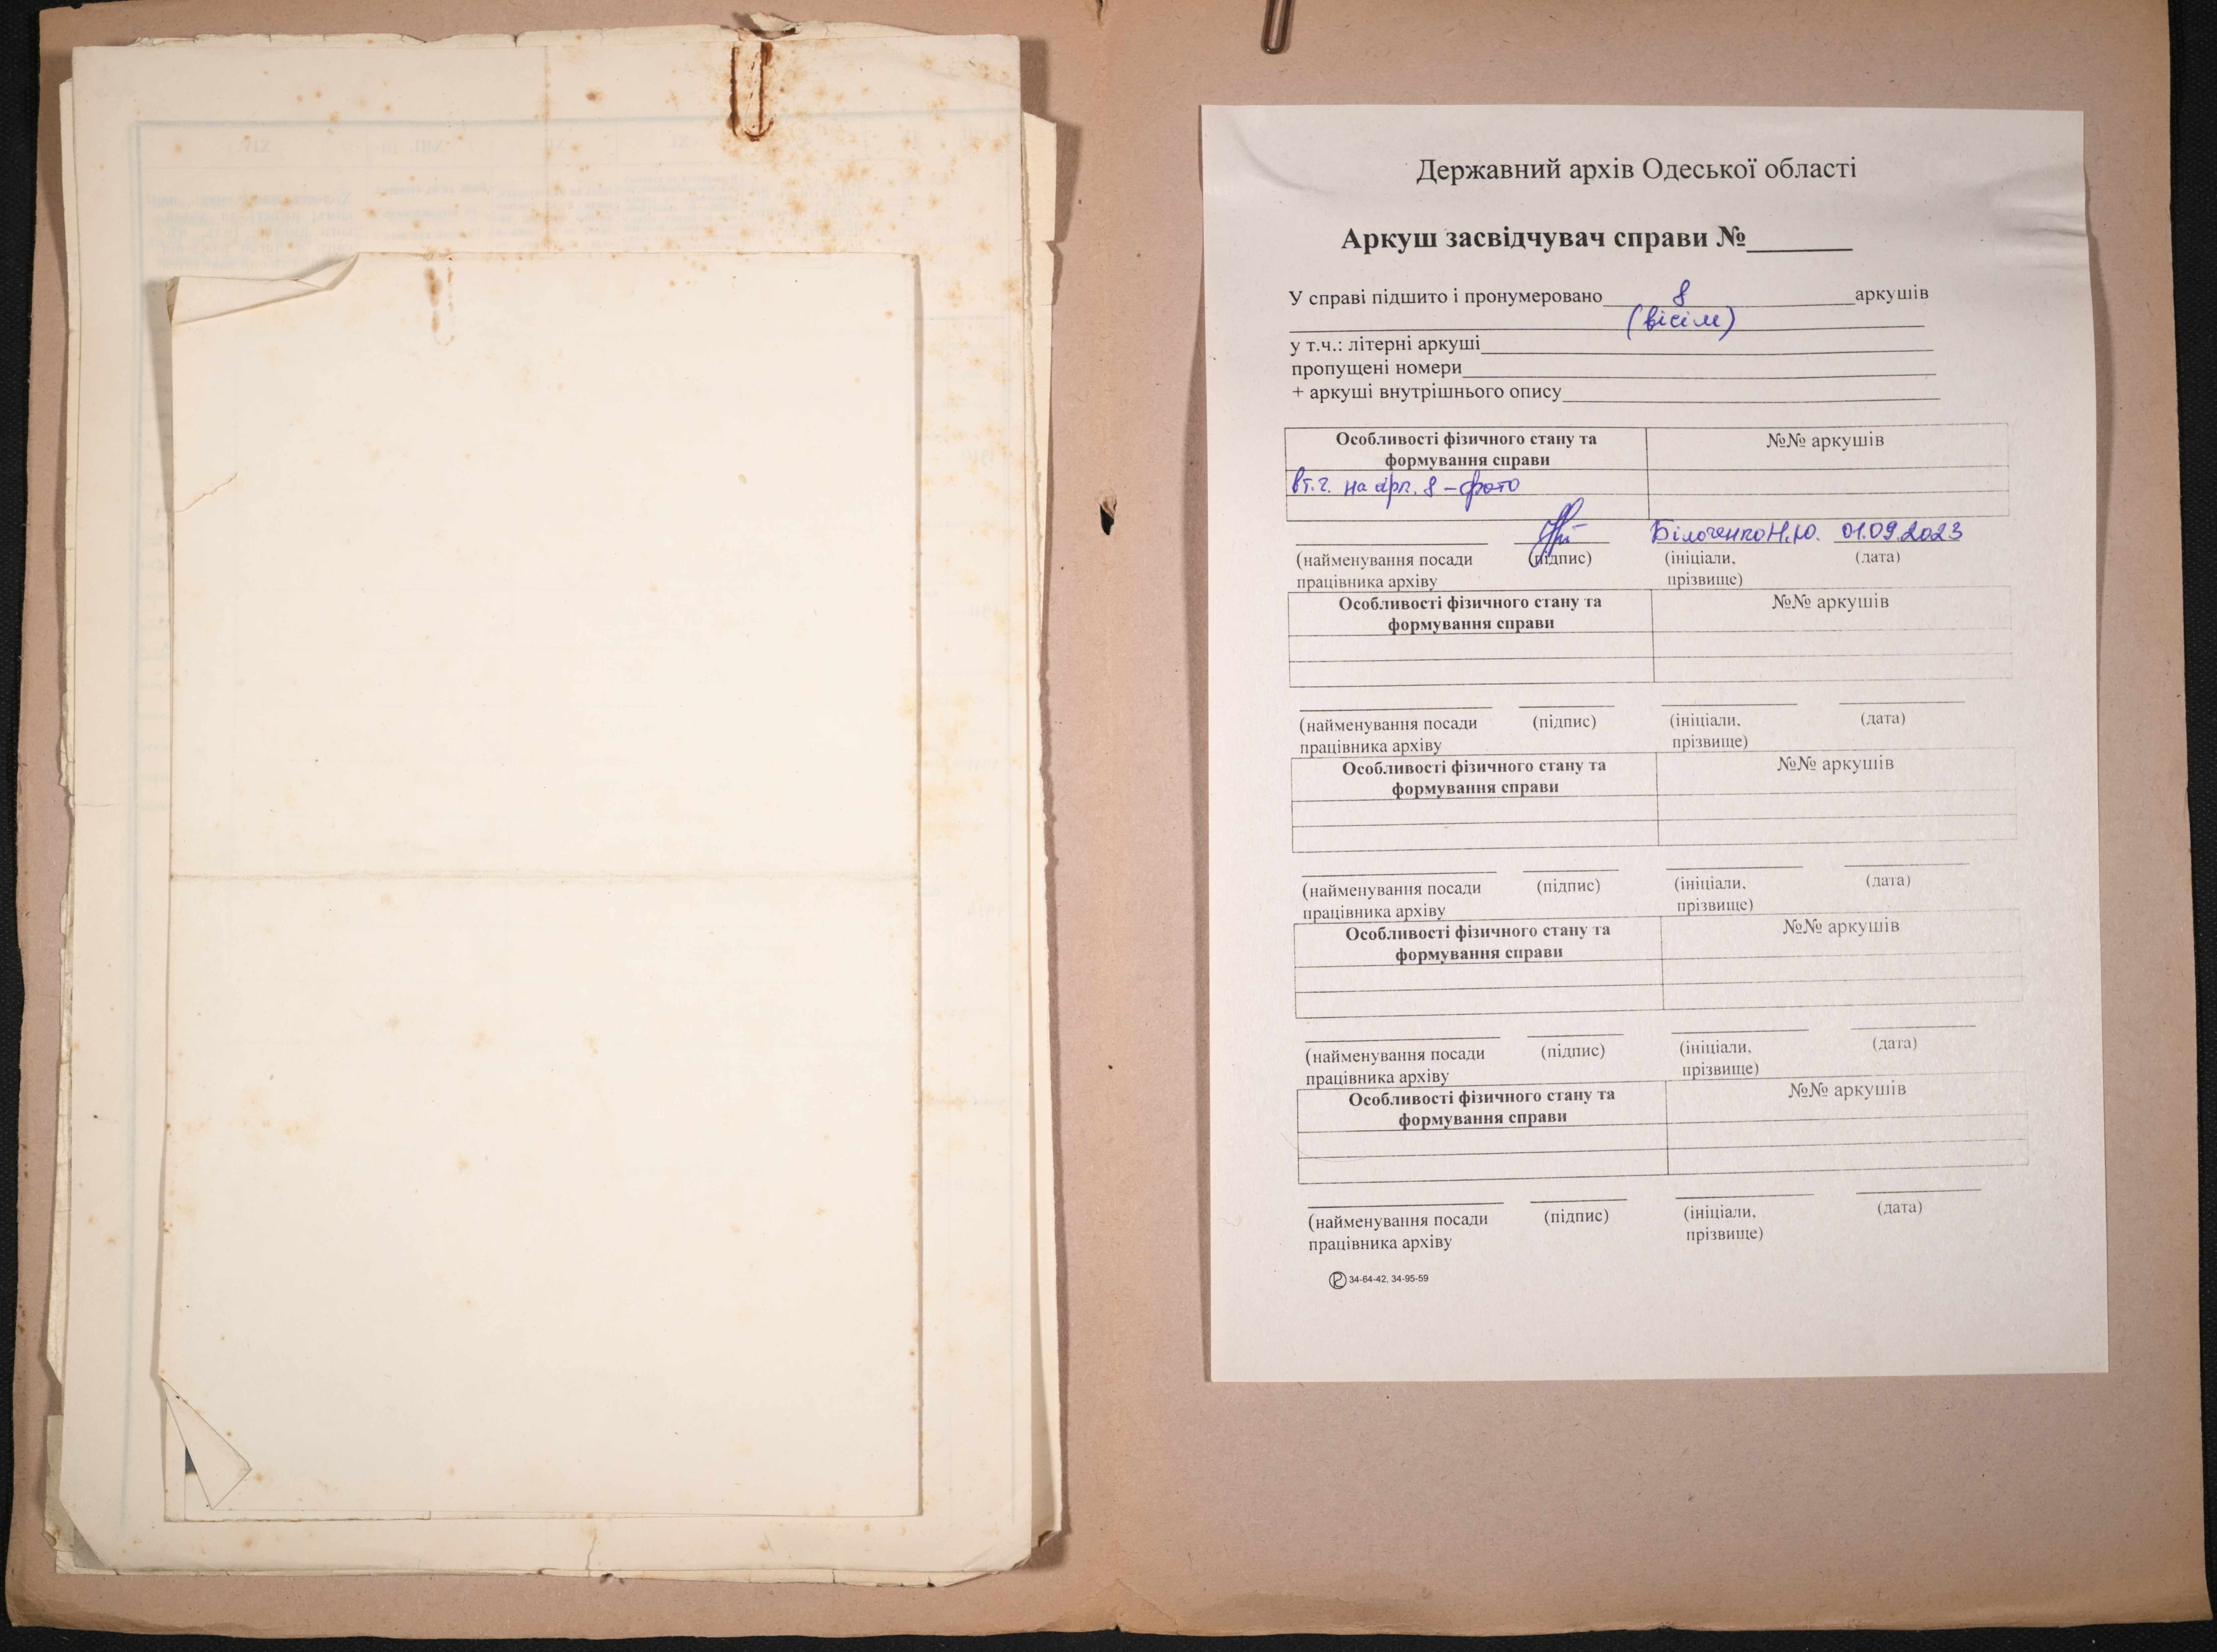 Державний архів Одеської області
Аркуш засвідчувач справи №_______
У справі підшито і пронумеровано 8 аркушів
(вісім)
у т.ч.: літерні аркуші
пропущені номери
+ аркуші внутрішнього опису
Особливості фізичного стану та формування справи №№ аркушів
в т.ч. на арк. 8 – фото
Білоченко Н.Ю. 01.09.2023
(найменування посади (підпис) (ініціали, (дата)
працівника архіву прізвище)
Особливості фізичного стану та №№ аркушів
формування справи
(найменування посади (підпис) (ініціали, (дата)
працівника архіву прізвище)
Особливості фізичного стану та №№ аркушів
формування справи
(найменування посади (підпис) (ініціали, (дата)
працівника архіву прізвище)
Особливості фізичного стану та №№ аркушів
формування справи
(найменування посади (підпис) (ініціали, (дата)
працівника архіву прізвище)
Особливості фізичного стану та №№ аркушів
формування справи
(найменування посади (підпис) (ініціали, (дата)
працівника архіву прізвище)
34-64-42, 34-95-59